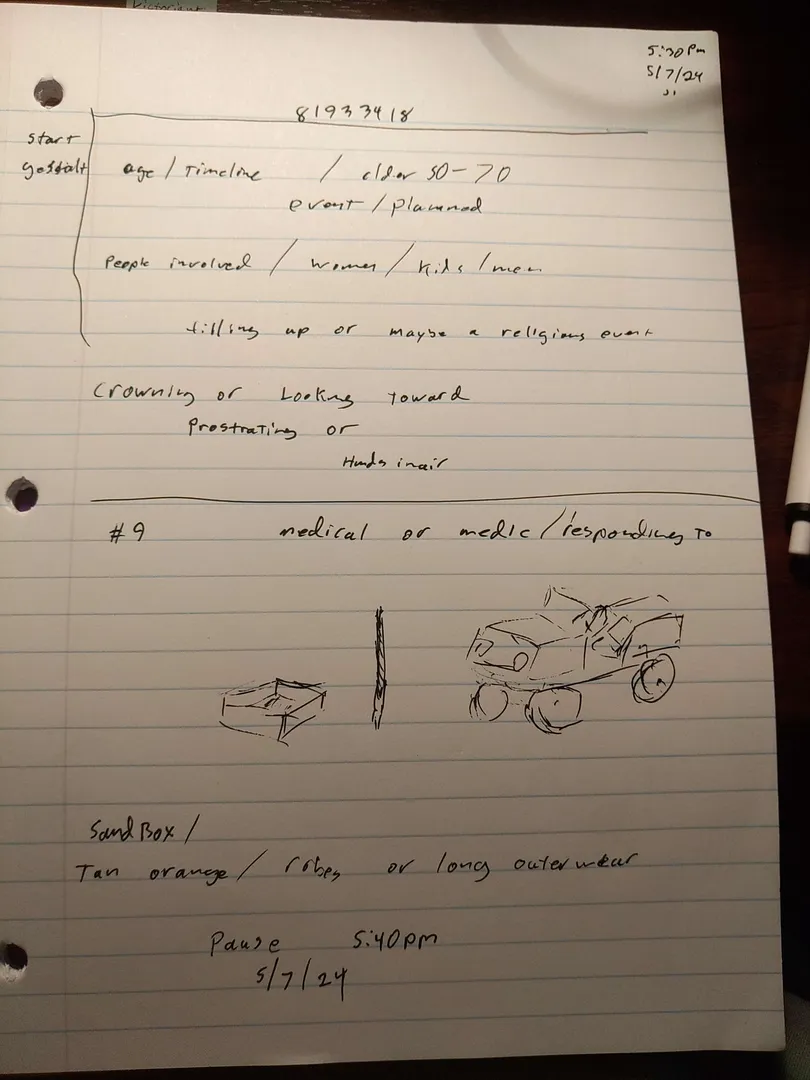 5:30 Pm
5/7/24
81933418
start
gestalt
age / Timeline / older 50-70
event / planned
People involved / women / Kids / men
filling up or maybe a religious event
Crowning or Looking Toward
Prostrating or
Hands in air
#9 medical or medic / responding to
Sand Box /
Tan orange / robes or long outerwear
Pause 5:40pm
5/7/24